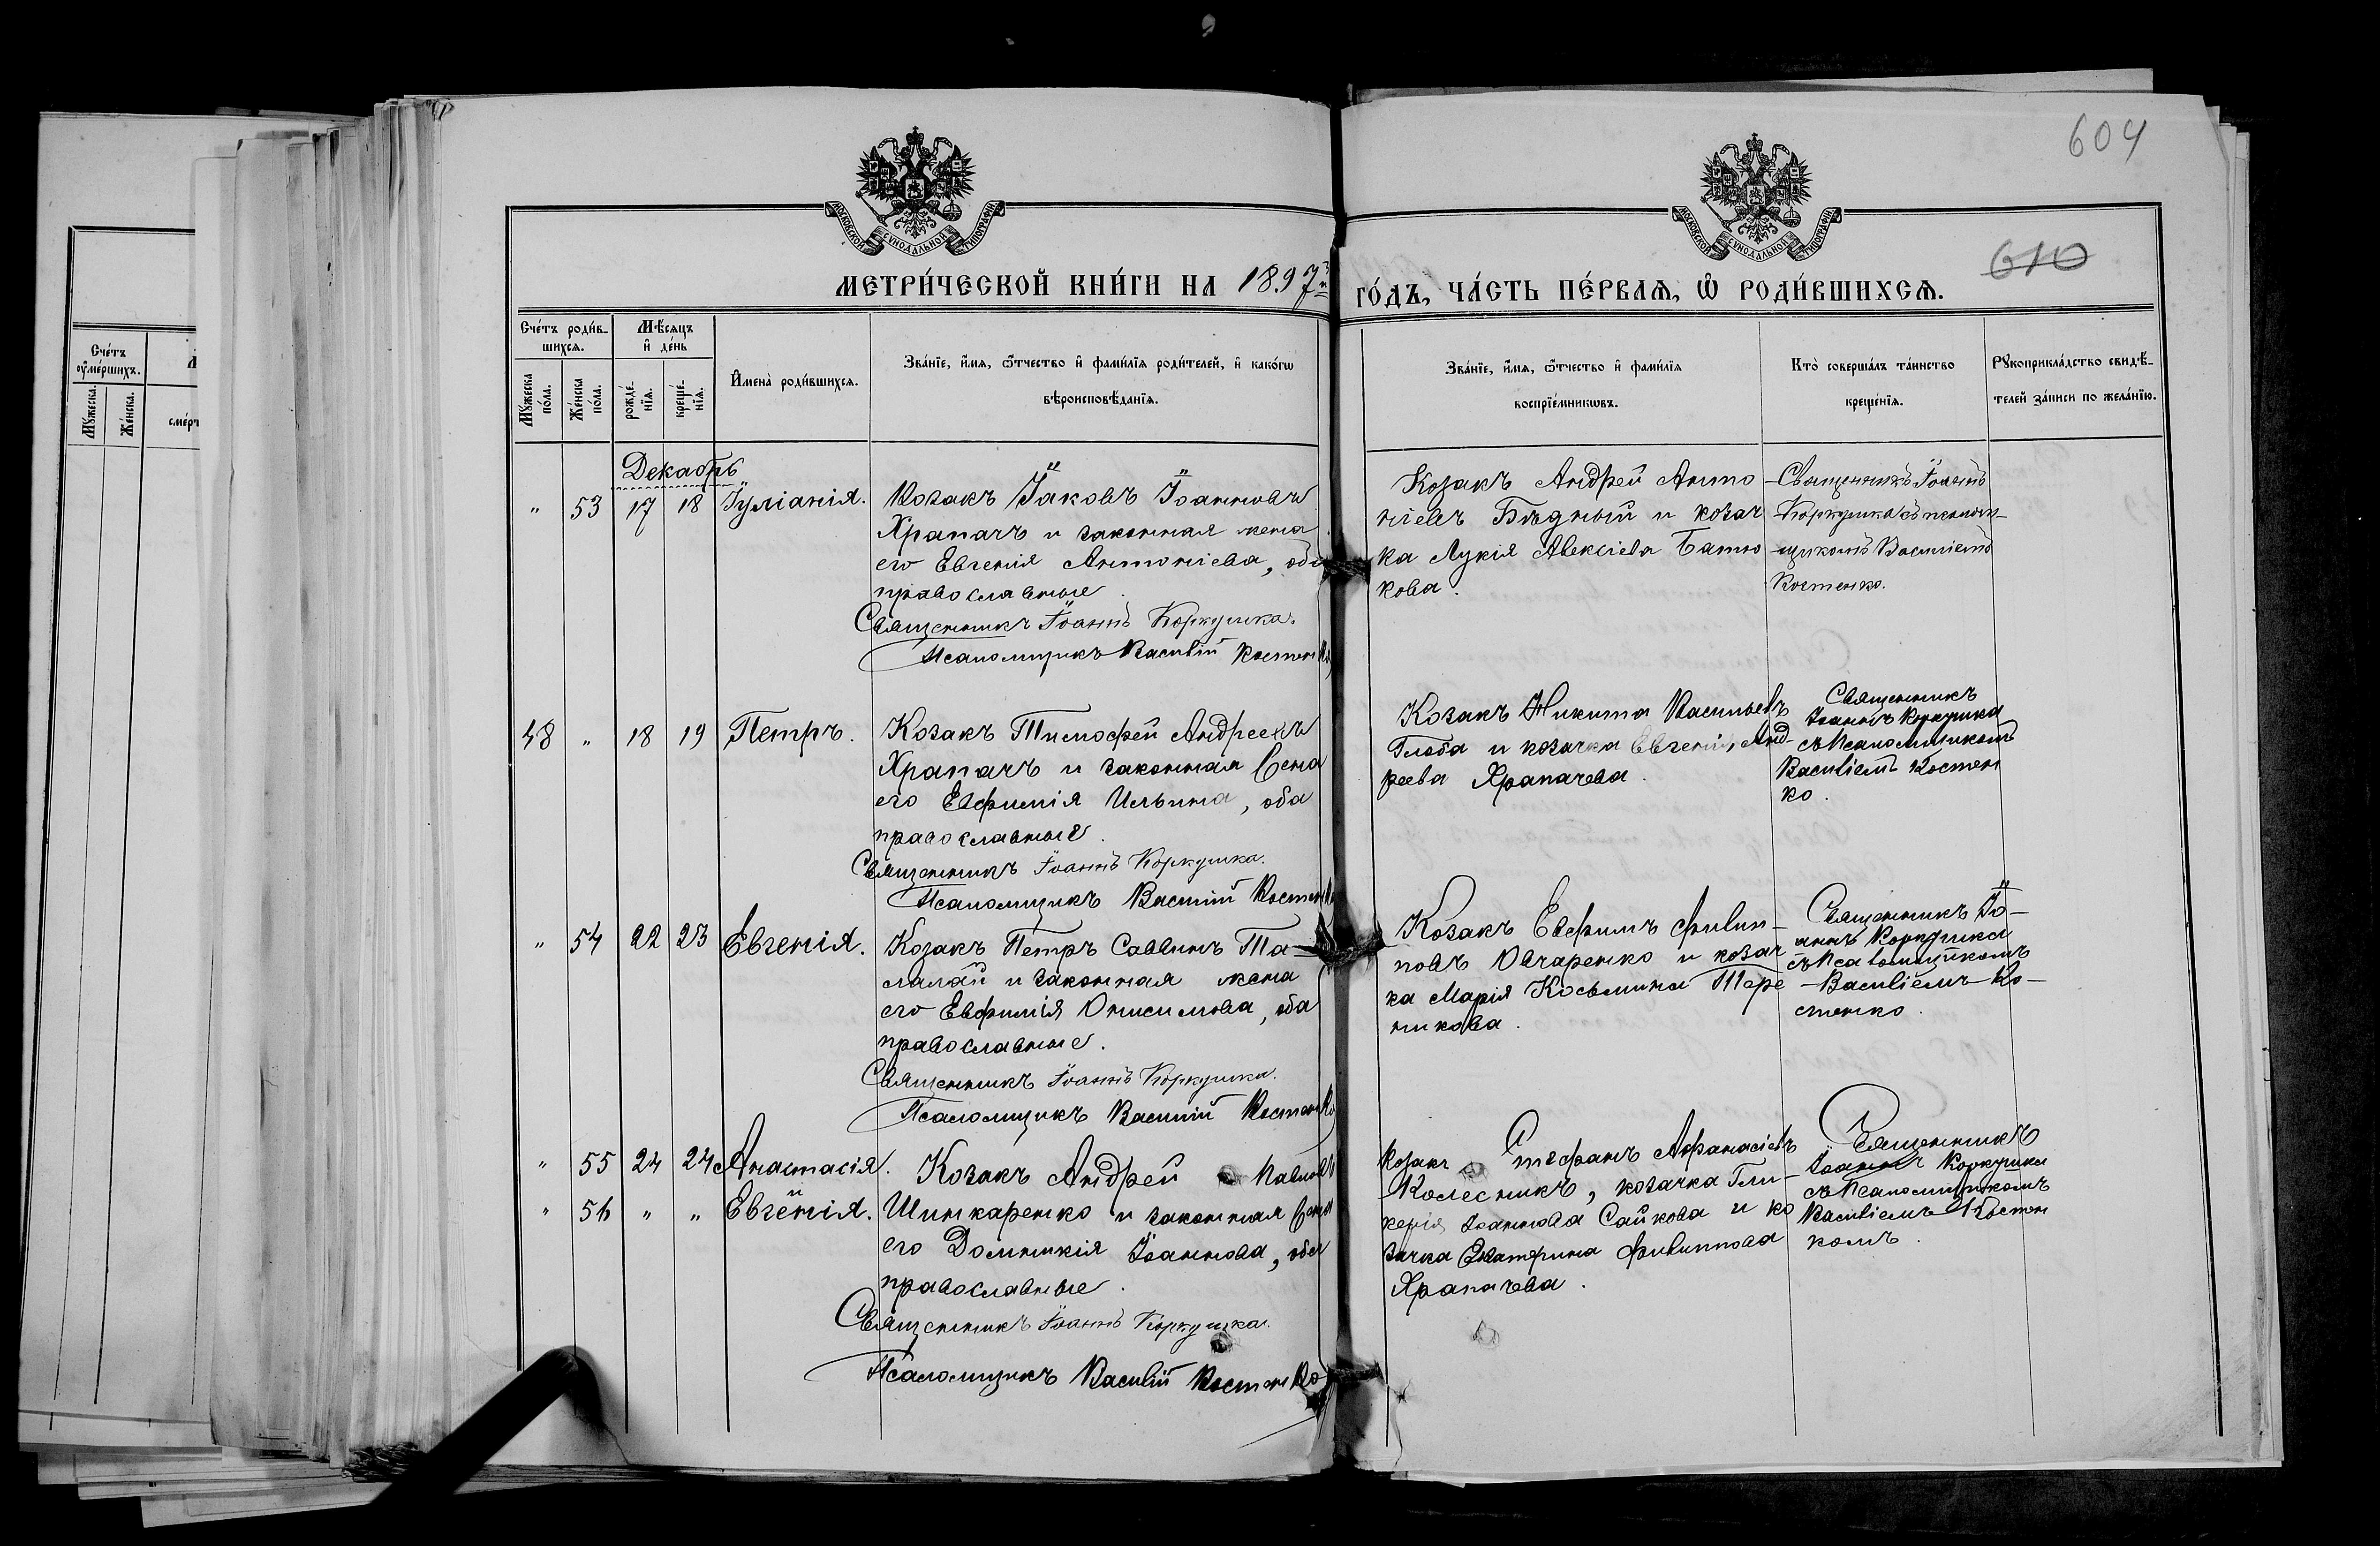 604
610
МОСКОВСКОЙ СУНОДАЛЬНОЙ ТИПОГРАФІИ
МОСКОВСКОЙ СУНОДАЛЬНОЙ ТИПОГРАФІИ
МЕТРИ́ЧЕСКОЙ КНИ́ГИ НА 1897й
ГО́ДЪ, ЧА́СТЬ ПЕ́РВАѦ, Ѡ РОДИ́ВШИХСѦ.
Сче́тъ оу҆ме́ршихъ.
Мꙋ́жеска.
Же́нска.
Сче́тъ роди́в-
шихсѧ.
Мꙋ́жеска по́ла.
Же́нска по́ла.
Мѣ́сѧцъ и҆ де́нь
рожде́-
нїѧ.
креще́-
нїѧ.
И҆мена̀ роди́вшихсѧ.
Зва́нїе, и҆́мѧ, ѻ҆́тчество и҆ фами́лїѧ роди́телей, и҆ како́гѡ
вѣроисповѣ́данїѧ.
Зва́нїе, и҆́мѧ, ѻ҆́тчество и҆ фами́лїѧ
воспрїе́мникѡвъ.
Кто̀ соверша́лъ та́инство
креще́нїѧ.
Рꙋкоприкла́дство свидѣ́-
телей за́писи по жела́нїю.
Декабрь
" 53 17 18 Іуліанія.
Козакъ Іаковъ Іоанновъ
Храпачъ и законная жена
его Евгенія Антоніева, оба
православные.
Священникъ Іоаннъ Коркушка.
Псаломщикъ Василій Костенко
Козакъ Андрей Анто
ніевъ Бѣдный и козач
ка Лукія Алексіева Батю
кова.
Священникъ Іоаннъ
Коркушка съ псалом-
щикомъ Василіемъ
Костенко.
48 " 18 19 Петръ.
Козакъ Тимофей Андреевъ
Храпачъ и законная жена
его Евфимія Ильина, оба
православные.
Священникъ Іоаннъ Коркушка.
Псаломщикъ Василій Костенко
Козакъ Никита Васильевъ
Глоба и козачка Евгенія Анд-
реева Храпачева.
Священникъ
Іоаннъ Коркушка
съ Псаломщикомъ
Василіемъ Костен
ко.
" 54 22 23 Евгенія.
Козакъ Петръ Саввинъ Та-
малай и законная жена
его Евфимія Онисимова, оба
православные.
Священникъ Іоаннъ Коркушка.
Псаломщикъ Василій Костенко
Козакъ Евфимъ Филип-
повъ Овчаренко и козач
ка Марія Косьмина Тере
никова.
Священникъ Іо-
аннъ Коркушка
съ Псаломщикомъ
Василіемъ Ко-
стенко.
" 55 24 24 Анастасія.
" 56 " " Евгенія.
Козакъ Андрей Павловъ
Шинкаренко и законная жена
его Домникія Іоаннова, оба
православные.
Священникъ Іоаннъ Коркушка.
Псаломщикъ Василій Костенко
Козакъ Стефанъ Афанасіевъ
Колесникъ, козачка Гли-
керія Іоаннова Сайкова и ко
зачка Екатерина Филиппова
Храпачева.
Священникъ
Іоаннъ Коркушка
съ Псаломщикомъ
Василіемъ Костен
комъ.